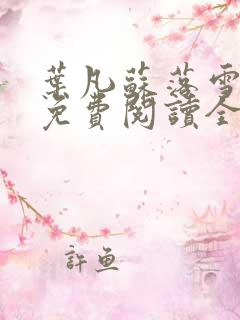 葉凡蘇落雪
免費閱讀全
許魚